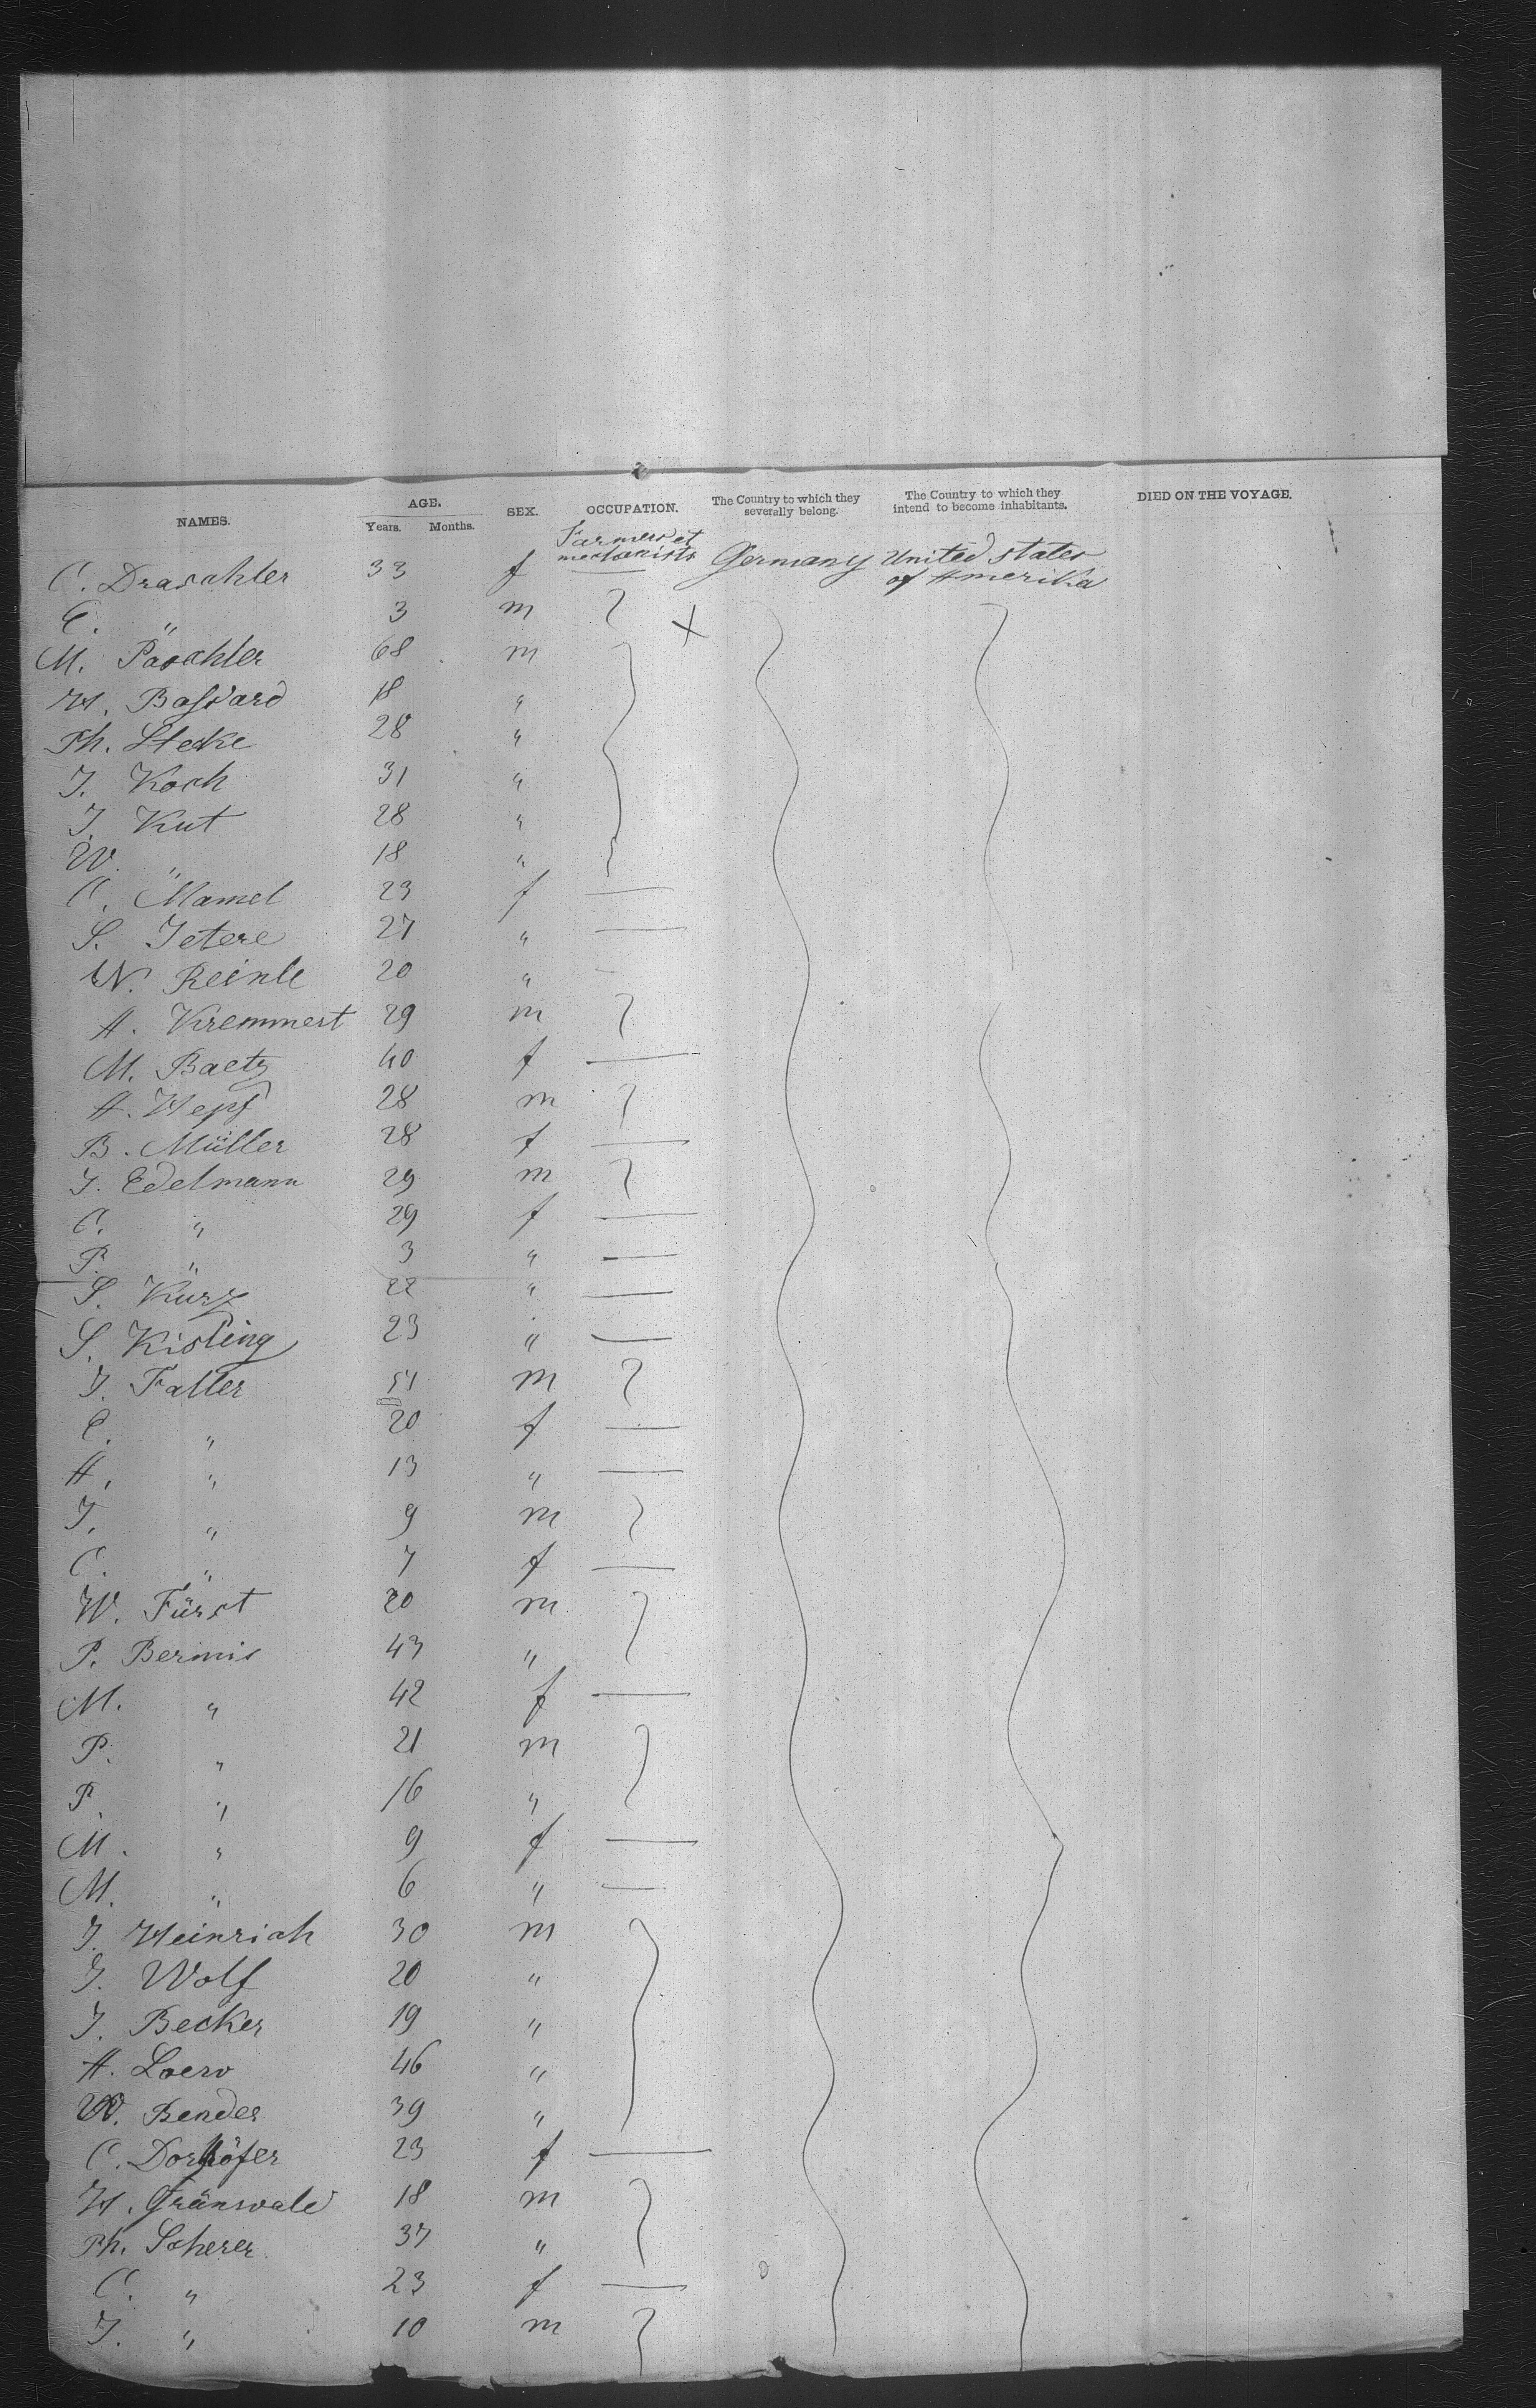 NAMES. AGE. Years. Months. SEX. OCCUPATION. The Country to which they severally belong. The Country to which they intend to become inhabitants. DIED ON THE VOYAGE.
C. Draschler 33 f Farmers et mechanists Germany United States of Amerika
E. " 3 m
M. Paschler 68 m
H. 18 "
Ph. Stecke 28 "
J. Koch 31 "
J. Kut 28 "
W. " 18 "
C. Mamel 23 f
S. Jetere 27 "
W. Reinle 20 "
A. Kremmert 29 m
M. Baetz 40 f
A. Hepf 28 m
B. Müller 28 f
J. Edelmann 29 m
C. " 29 f
P. " 3 "
S. Kurz 22 "
S. Kisling 23 "
J. Faller 51 m
E. " 20 f
A. " 13 "
J. " 9 m
C. " 7 f
W. Fürst 20 m
P. Bermis 43 "
M. " 42 f
P. " 21 m
P. " 16 "
M. " 9 f
M. " 6 "
J. Heinrich 30 m
J. Wolf 20 "
J. Becker 19 "
A. Loew 46 "
W. Bender 39 "
C. Dorhöfer 23 f
H. Grünwald 18 m
Ph. Scherer 37 "
C. " 23 f
J. " 10 m